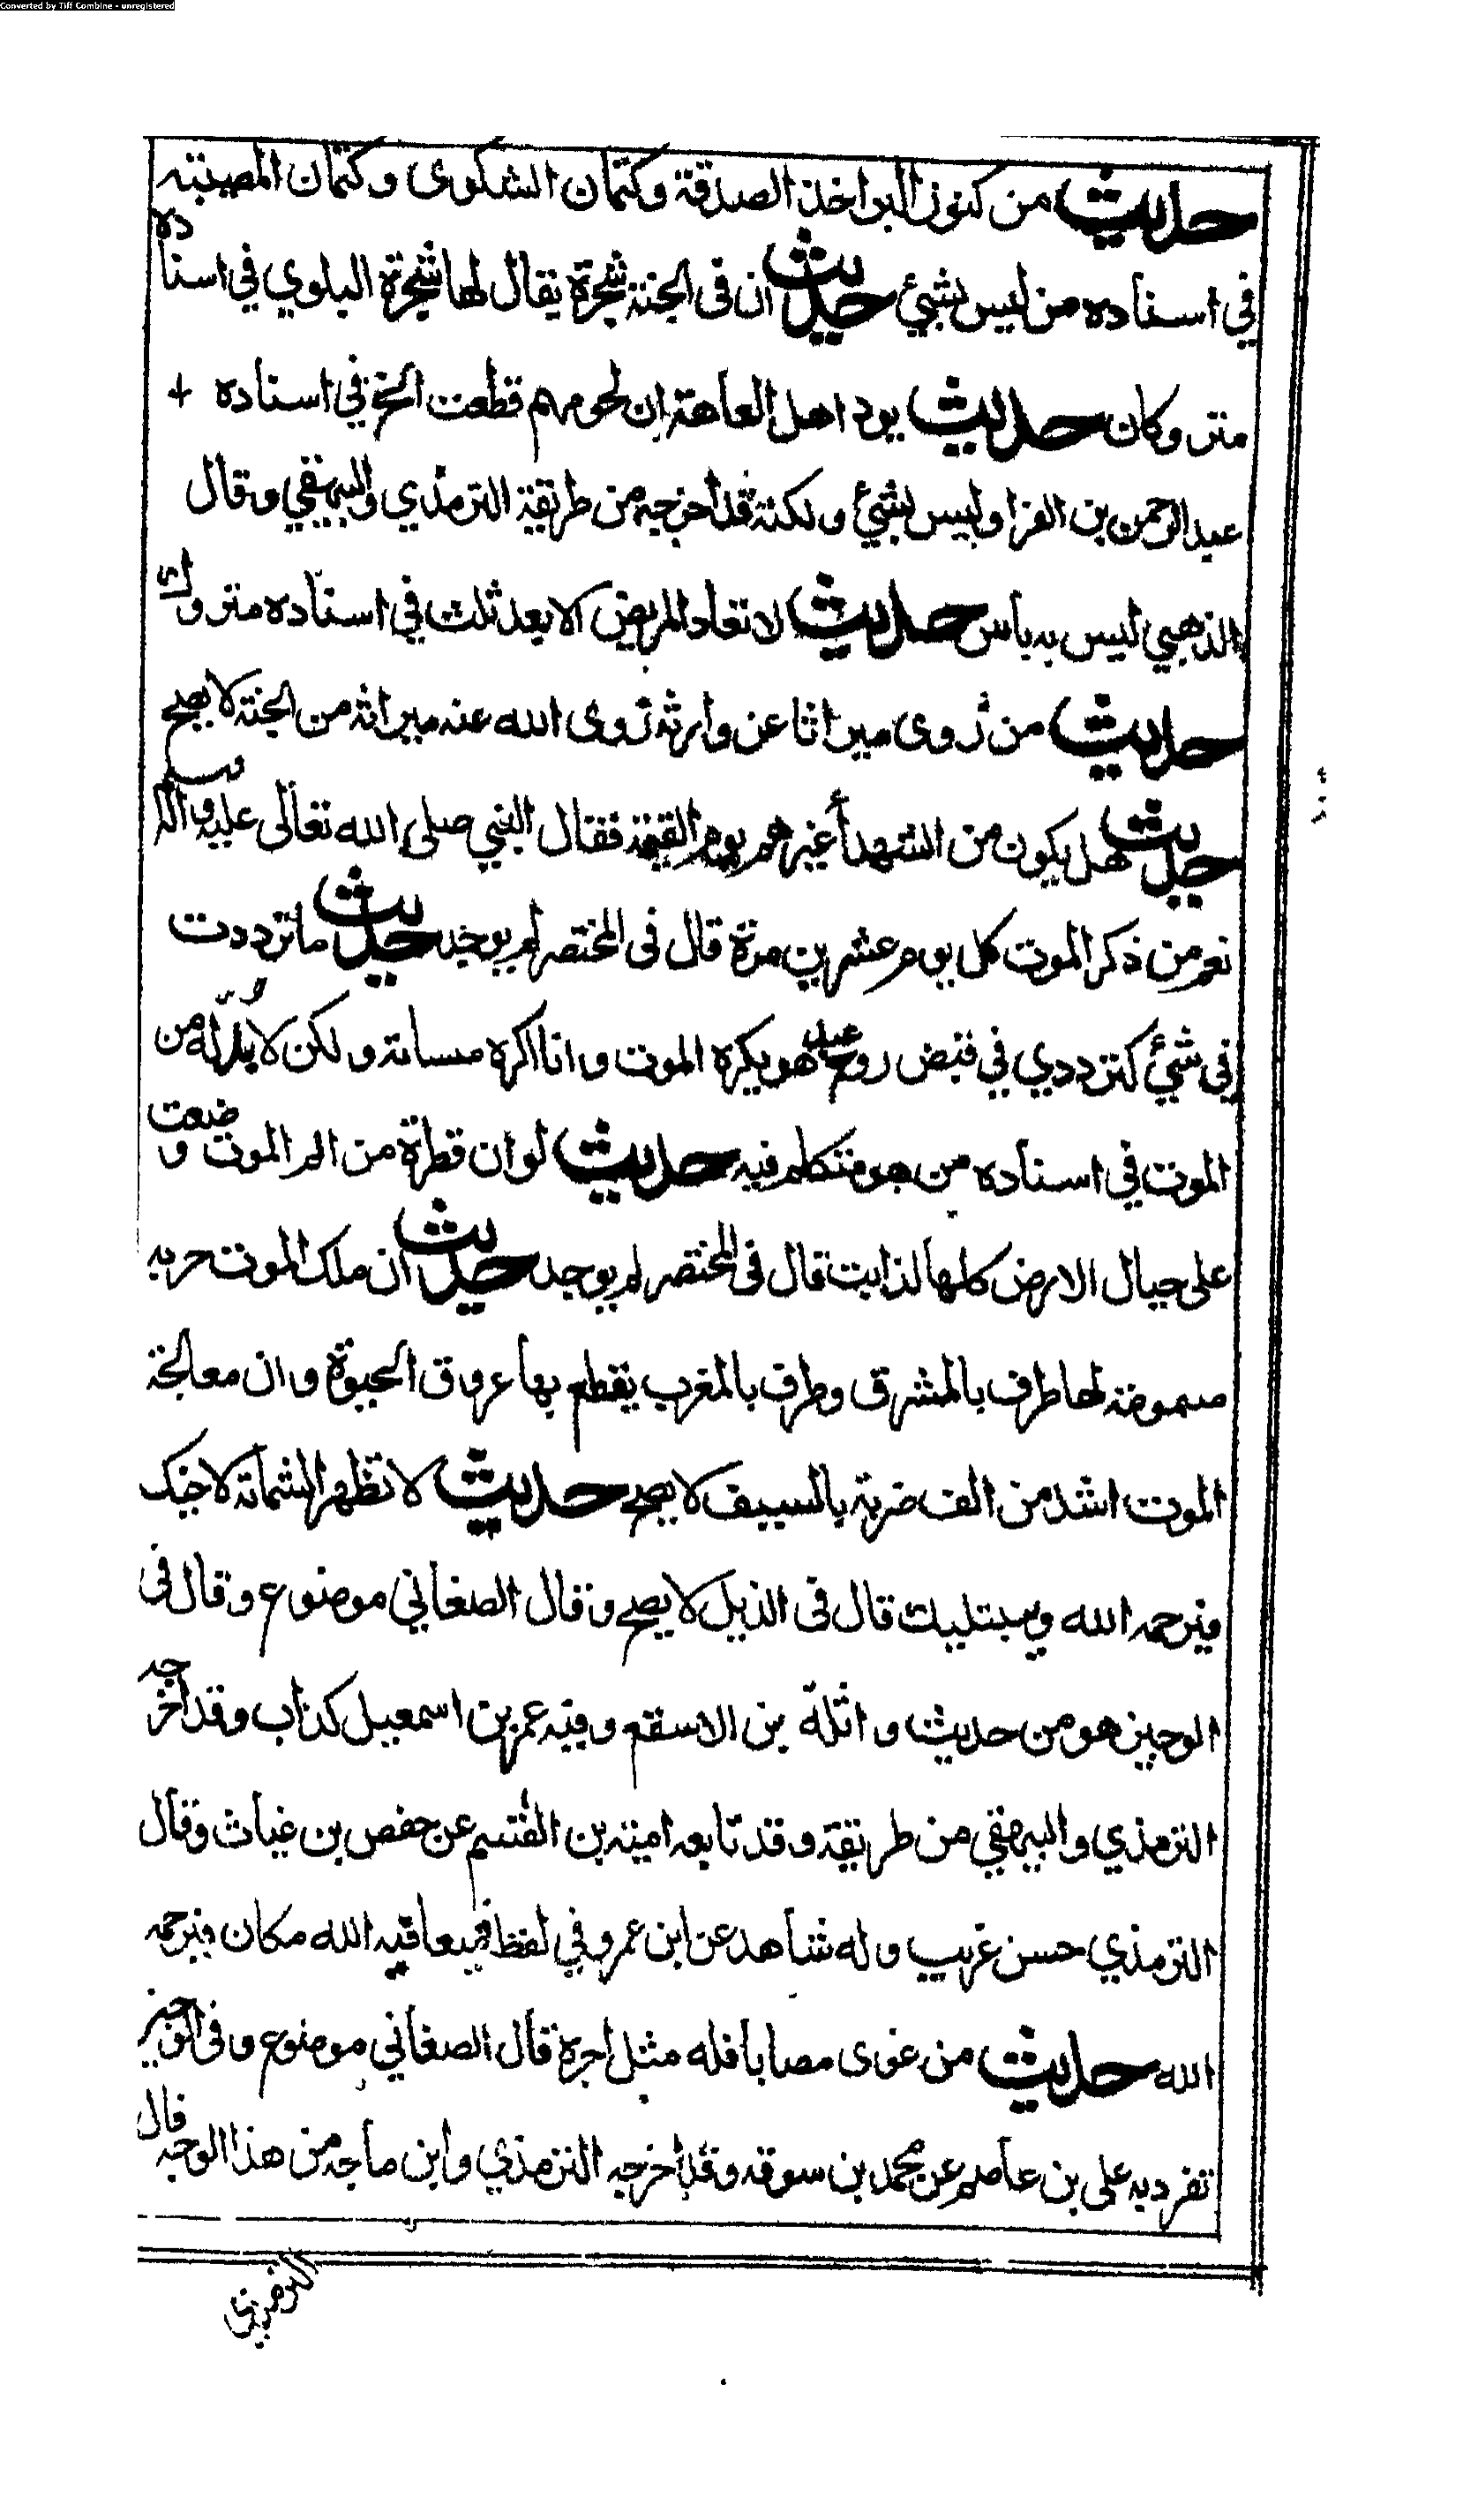 Converted by Tiff Combine - unregistered
حديث من كنوز البر اخذ الصدقة وكتمان الشكوى وكتمان المصيبته
في اسناده من ليس بشيئ حديث ان فى الجنة شجرة يقال لها شجرة البلوي في اسناده
متروكان حديث يود اهل العاهة ان لحومهم قطعت الخ في اسناده
عبد الرحمن بن الفزا وليس بشيئ ولكنة قد اخرجه من طريقة الترمذي والبيهقي وقال
الذهبي ليس به باس حديث لا تعاد المريض الا بعد ثلث في اسناده متروك
حديث من زوى ميراثا عن وارثه زوى الله عنه ميراثه من الجنة لا يصح
حديث هل يكون من الشهدأ غيرهم يوم القيمة فقال النبي صلى الله تعالى عليه واله وسلم
نعم من ذكر الموت كل يوم عشرين مرة قال فى المختصر لم يوجد حديث ما ترددت
في شيئ كترددي في قبض روح عبد هو يكره الموت وانا اكره مساته ولكن لا بد له من
الموت في اسناده من هو متكلم فيه حديث لو ان قطرة من الم الموت وضعت
على جبال الارض كلها لذابت قال فى المختصر لم يوجد حديث ان ملك الموت حربه
مسمومة لها طرف بالمشرق وطرف بالمغرب يقطع بها عروق الحيوة وان معالجة
الموت اشد من الف ضربة بالسيف لا يصح حديث لا تظهر الشماتة لاخيك
فيرحمه الله ويبتليك قال فى الذيل لا يصح وقال الصغاني موضوع وقال فى
الوجيز هو من حديث واثلة بن الاسقع وفيه عمر بن اسمعيل كذاب وقد اخرجه
الترمذي والبيهقي من طريقة وقد تابعه امية بن القسم عن حفص بن غياث وقال
الترمذي حسن غريب وله شاهد عن ابن عمر وفي لفظ فيعافيه الله مكان فيرحمه
الله حديث من عزى مصابا فله مثل اجره قال الصغاني موضوع وفى الوجيز
تفرد به على بن عاصم عن محمد بن سوقه وقد اخرجه الترمذي وابن ماجه من هذا الوجه قال